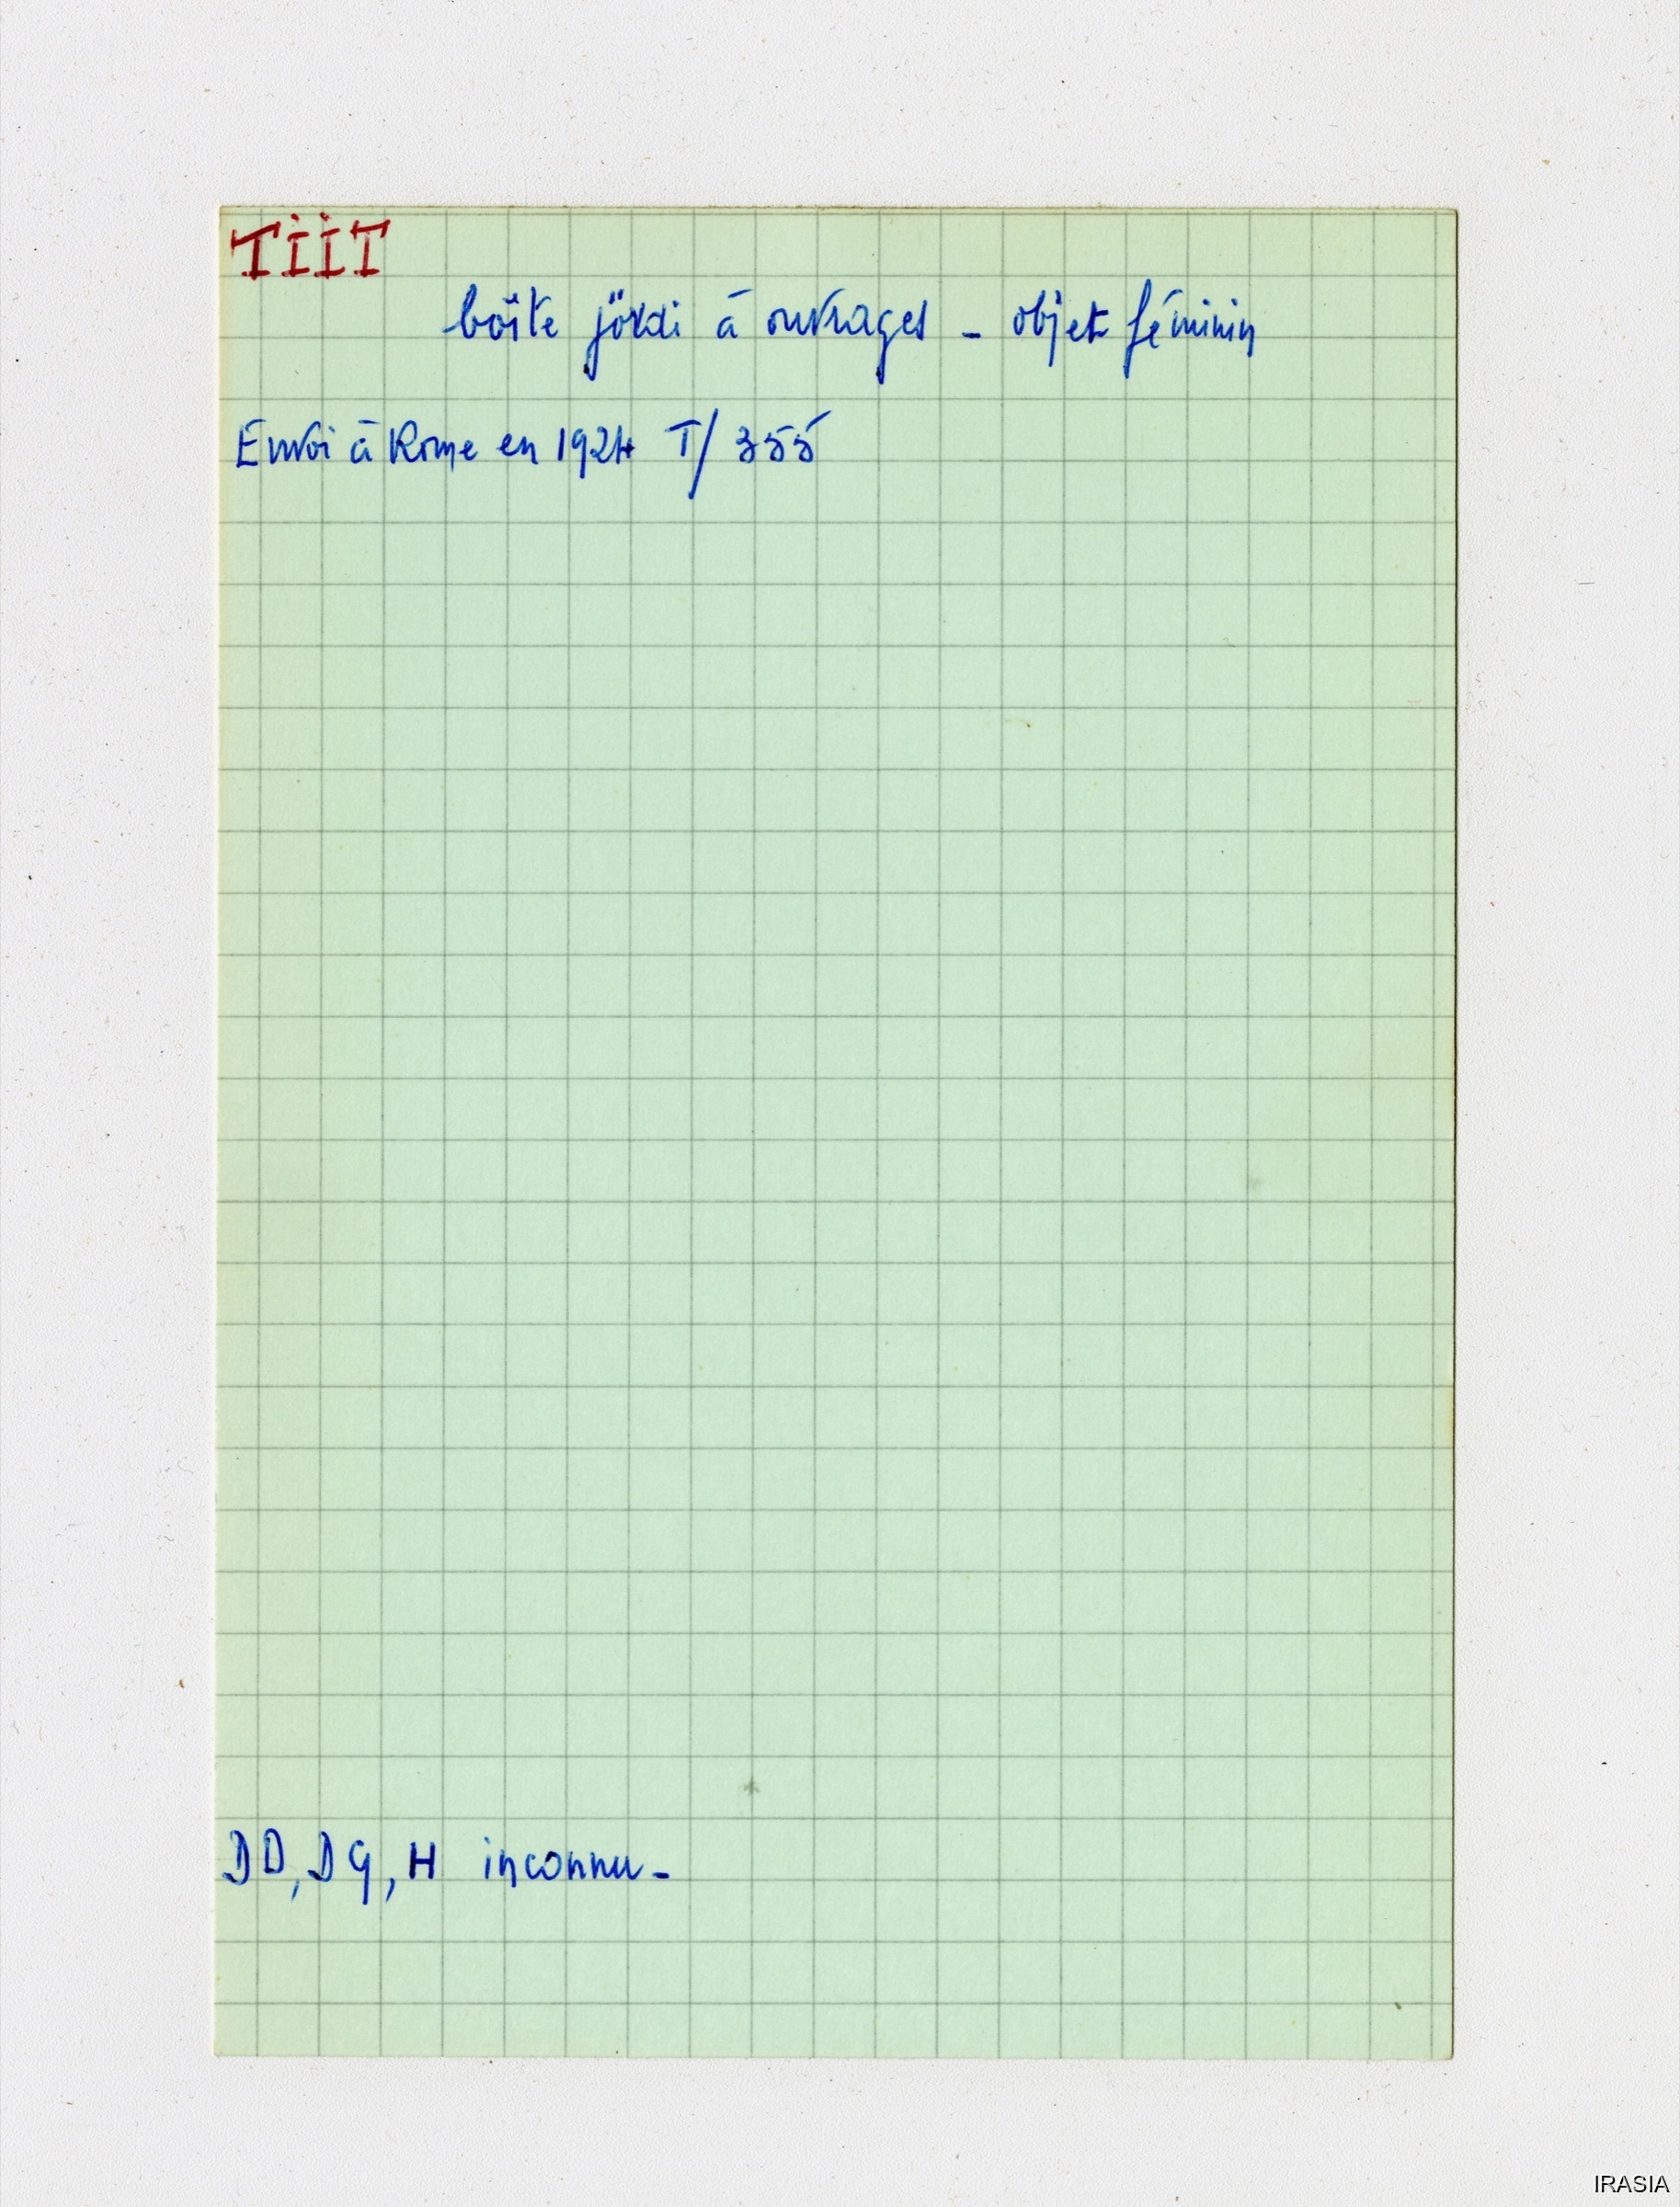 TIIT
boîte jörai à ouvrages - objet féminin
Envoi à Rome en 1924 T/355
DD, DG, H inconnu -
IRASIA